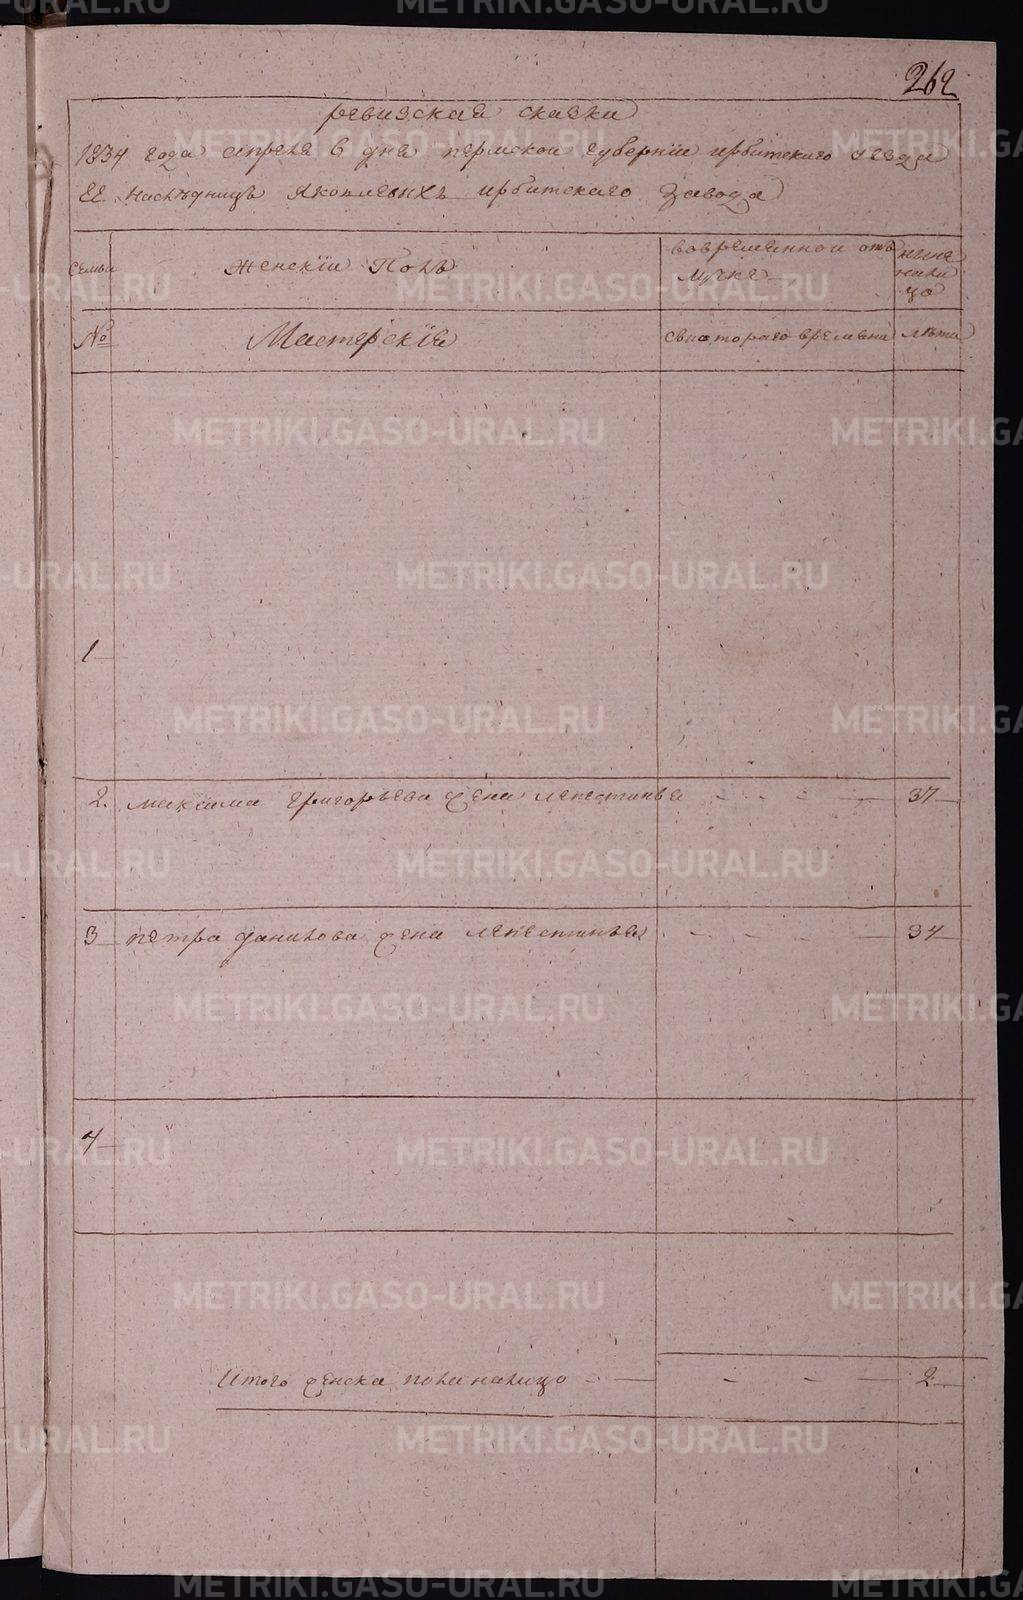 262
ревизская сказка
1834 года апреля 6 дня пермской губернiи ирбитского уезда
Наследницъ Яковлевыхъ ирбитскаго завода
Семьи
Женскiй Полъ
вовременной отъ
лучке
ныне
нали
цо
№
Мастерскiе
скоторого времяни
лета
1
2. максима григорьева жена - - - 37
3 петра данилова жена - - - 34
4
Итого женска пола налицо - - - 2
METRIKI.GASO-URAL.RU